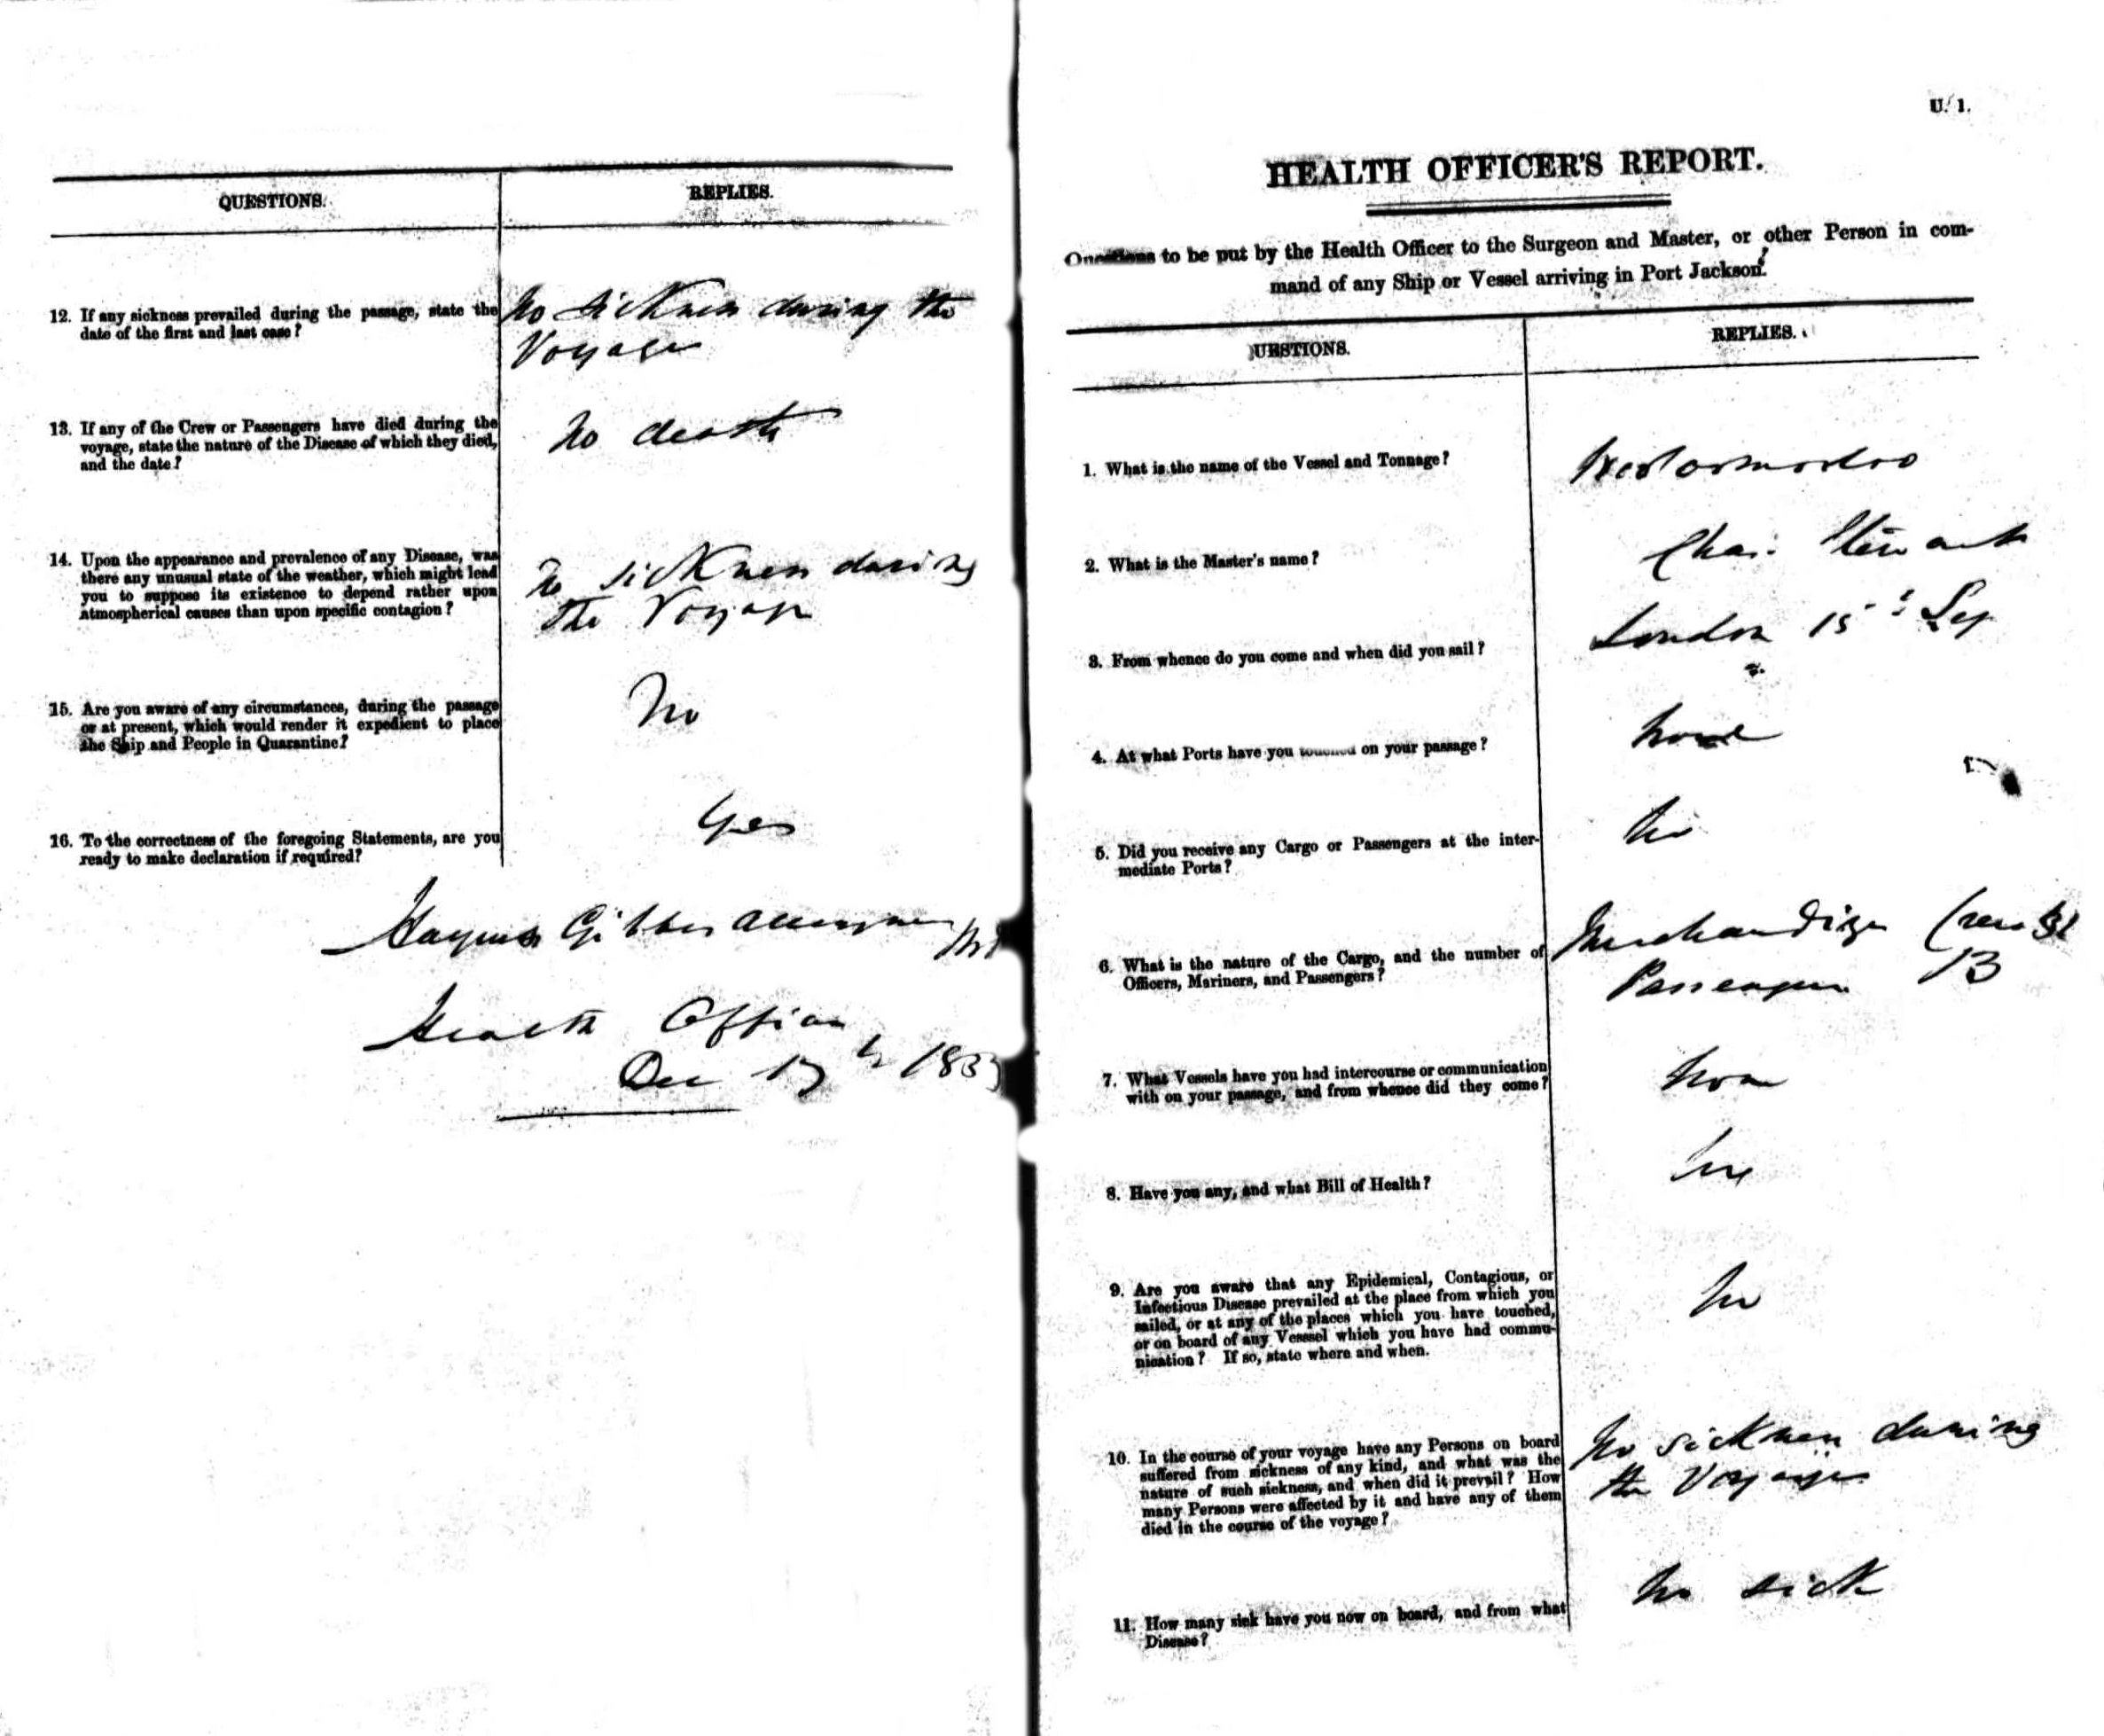 QUESTIONS.
REPLIES.
12. If any sickness prevailed during the passage, state the
date of the first and last case?
No sickness during the
Voyage
13. If any of the Crew or Passengers have died during the
voyage, state the nature of the Disease of which they died,
and the date?
No death
14. Upon the appearance and prevalence of any Disease, was
there any unusual state of the weather, which might lead
you to suppose its existence to depend rather upon
atmospherical causes than upon specific contagion?
No sickness during
the Voyage
15. Are you aware of any circumstances, during the passage
or at present, which would render it expedient to place
the Ship and People in Quarantine?
No
16. To the correctness of the foregoing Statements, are you
ready to make declaration if required?
Yes
Haynes Gibbes Alleyne MD
Health Officer
Dec 17th
U. 1.
HEALTH OFFICER'S REPORT.
Questions to be put by the Health Officer to the Surgeon and Master, or other Person in com-
mand of any Ship or Vessel arriving in Port Jackson.
UESTIONS.
REPLIES.
1. What is the name of the Vessel and Tonnage?
2. What is the Master's name?
Chas. Stewart
3. From whence do you come and when did you sail?
London 15 Sep
4. At what Ports have you touched on your passage?
None
5. Did you receive any Cargo or Passengers at the inter-
mediate Ports?
No
6. What is the nature of the Cargo, and the number of
Officers, Mariners, and Passengers?
Merchandize Crew
Passengers 13
7. What Vessels have you had intercourse or communication
with on your passage, and from whence did they come?
None
8. Have you any, and what Bill of Health?
9. Are you aware that any Epidemical, Contagious, or
Infectious Disease prevailed at the place from which you
sailed, or at any of the places which you have touched,
or on board of any Vesssel which you have had commu-
nication? If so, state where and when.
No
10. In the course of your voyage have any Persons on board
suffered from sickness of any kind, and what was the
nature of such sickness, and when did it prevail? How
many Persons were affected by it and have any of them
died in the course of the voyage?
No sickness during
the Voyage
11. How many sick have you now on board, and from what
Disease?
No sick